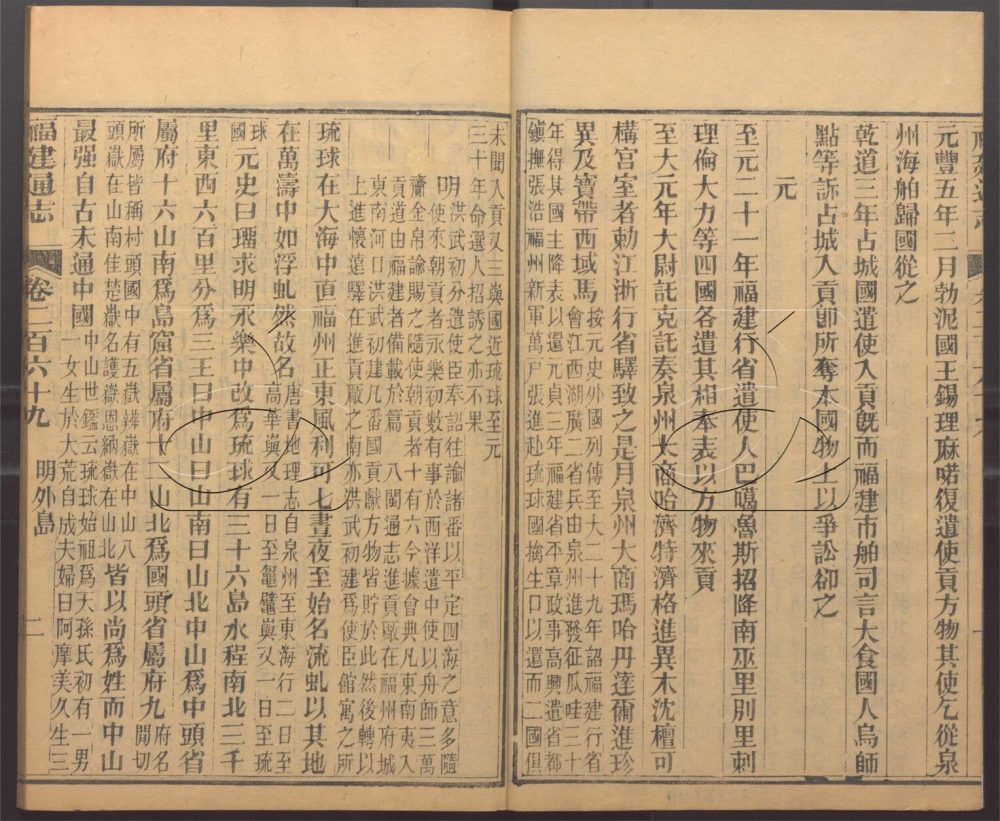 元豐五年二月勃泥國王錫理麻喏復遣使貢方物其使乞從泉
州海舶歸國從之
乾道三年占城國遣使入貢旣而福建市舶司言大食國人烏師
點等訴占城入貢卽所奪本國物上以爭訟卻之
元
至元二十一年福建行省遣使人巴噶魯斯招降南巫里別里剌
理倫大力等四國各遣其相奉表以方物來貢
至大元年大尉託克託奏泉州大商哈濟特濟格進異木沈檀可
構宮室者勅江浙行省驛致之是月泉州大商瑪哈丹達爾進珍
異及寶帶西域馬
按元史外國列傳至大二十九年詔福建行省
會江西湖廣二省兵由泉州進發征瓜哇三十
年得其國主降表以還元貞三年福建省平章政事高興遣省都
鎭撫張浩福州新軍萬戸張進赴琉球國擒生口以還而二國俱
未聞入貢又三嶼國近琉球至元
三十年命選人招誘之亦不果
明
洪武初分遣使臣奉詔往諭諸番以平定四海之意多隨
使來朝貢者永樂初數有事於西洋遣中使以舟師三萬
齎金帛諭賜之隨使朝貢者十有六今據會典凡東南夷入
貢道由福建者備載於篇
八閩通志進貢廠在福州府城
東南河口洪武初建凡番國貢獻方物皆貯於此然後轉以
上進懷遠驛在進貢廠之南亦洪武初建爲使臣館寓之所
琉球在大海中直福州正東風利可七晝夜至始名流虬以其地
在萬濤中如浮虬然故名
唐書地理志自泉州至東海行二日至
高華嶼又一日至鼊鼊嶼又一日至琉
球
國
元史曰瑠求明永樂中改爲琉球有三十六島水程南北三千
里東西六百里分爲三王曰中山曰山南曰山北中山爲中頭省
屬府十六山南爲島窟省屬府十二山北爲國頭省屬府九
府名
閒切
所屬皆稱村頭國中有五嶽辨嶽在中山八
頭嶽在山南佳楚嶽名護嶽恩納嶽在山北
皆以尚爲姓而中山
最强自古未通中國
中山世鑑云琉球始祖爲天孫氏初有一男
一女生於大荒自成夫婦曰阿摩美久生三
福建通志
卷二百六十九
明外島
二